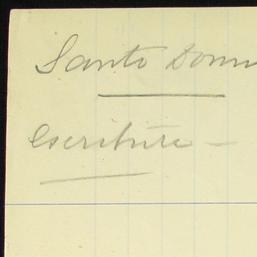 Santo Dom
Escritura -